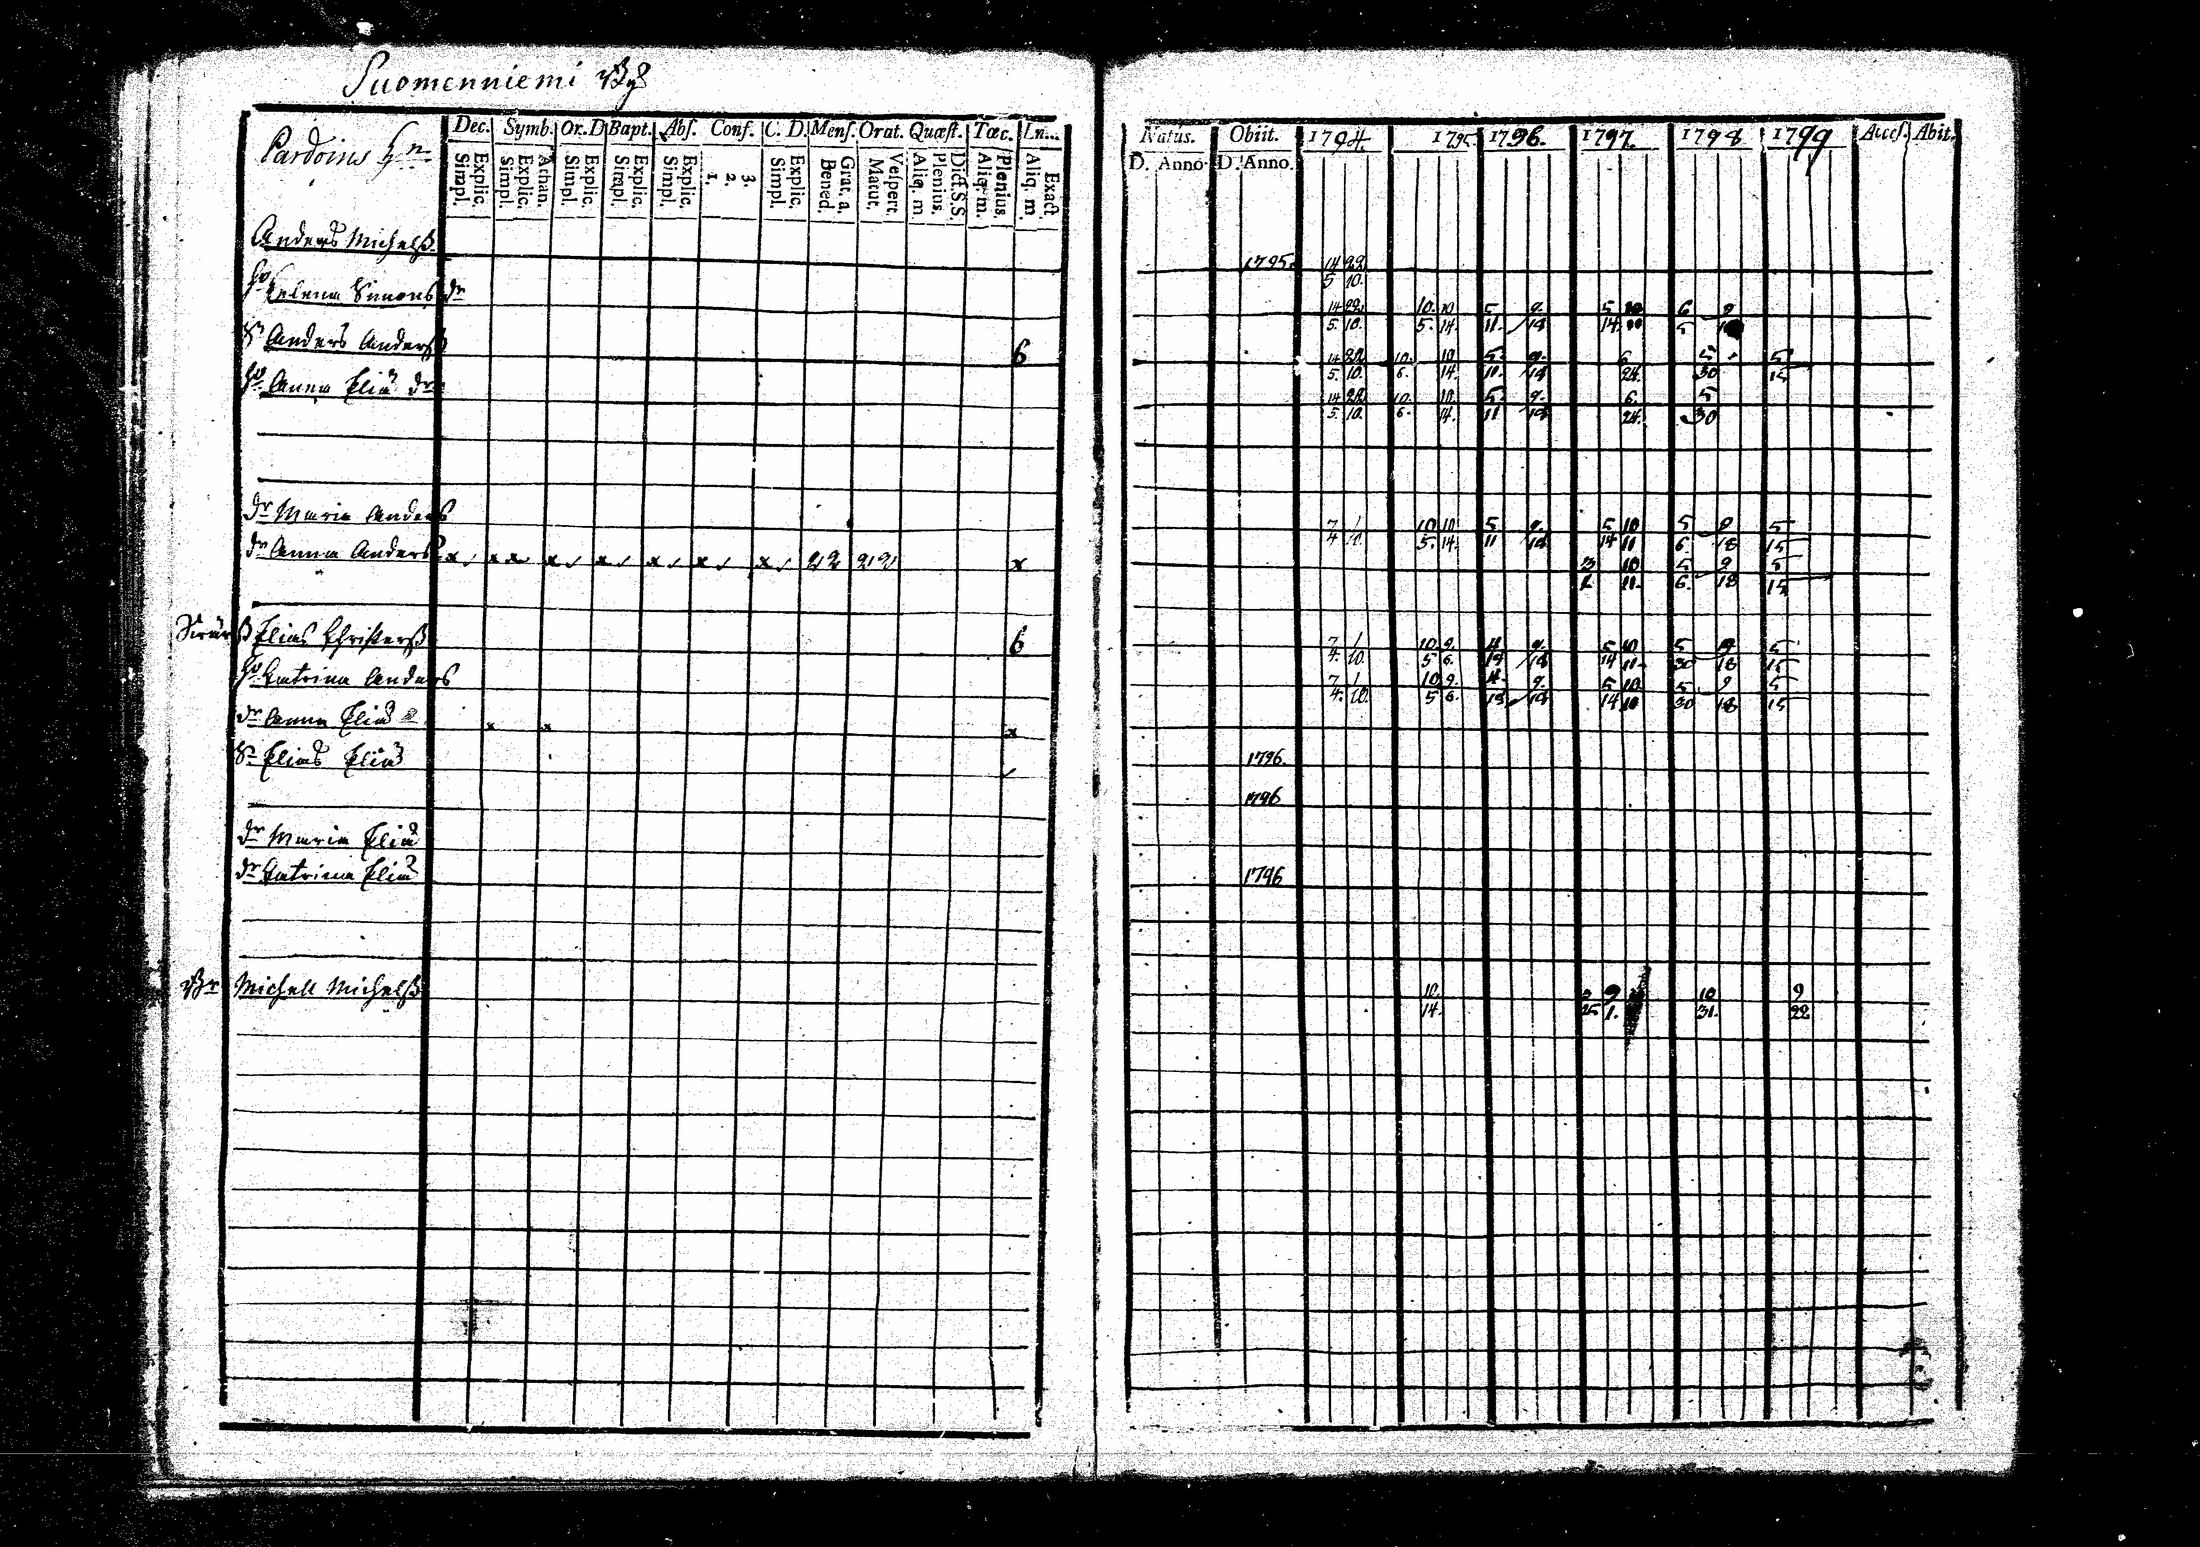 Suomenniemi By
Dec. Symb. Or. D. Bapt. Abs. Conf. C. D. Mens. Orat. Quæst. Tœc. Ln...
Pardoins Hn
Simpl. Explic. Simpl. Explic. Athan. Simpl. Explic. Simpl. Explic. Simpl. Explic. 1. 2. 3. Simpl. Explic. Bened. Grat. a. Matut. Vespert. Aliq. m. Plenius. Dict. S.S. Aliq. m. Plenius. Aliq. m. Exact
Natus. Obiit. 1794. 1795. 1796. 1797. 1798 1799 Acces. Abit.
D. Anno D. Anno.
Anders Michelss 1795. 14 22
5 10.
Hu Helena Simons dr 14 22 10. 10 5 9. 5 10 6 9
5. 10. 5. 14. 11. 18 14. 5
Sn Anders Anderss 6 14 22 10. 10 5. 9. 6 5 5
5. 10. 6. 14. 11. 18 24. 30 15
Hu Anna Elia dr 14 22 10. 10. 5. 9. 6. 5
5. 10. 6. 14. 11 18 24. 30
dr Maria Anders 7 1 10 10 5. 9. 5 10 5 9 5
4 5. 14. 11 18 14 11 6. 18 15
dr Anna Anders x x x 22 22 x 3 10 5 9 5
11. 6. 18 15
Elias Christerss 6 7 1 10 9. 4 9. 5 10 5 9 5
4. 10. 5 6. 18 14 11. 30 18 15
Hu Catrina Anders 7 1 10 9. 4. 9. 5 10 5 9 5
4. 10. 5 6. 18 14 11 30 18 15
dr Anna Elia x x x
Sn Elias Elia 1796.
1796
dr Maria Elia
dr Catrina Elia 1796
Br Michell Michelss 10. 9 10 9
14. 25 1. 31. 22